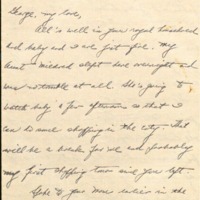 George, my love,
All is well in your royal household
and baby and I are just fine. My
Aunt Mildred slept here overnight and
was no trouble at all. She is going to
watch baby for afternoon so that I
can do some shopping in the city. That
will be a break for me and probably
my first shopping town since you left.
Spoke to your mom earlier in the